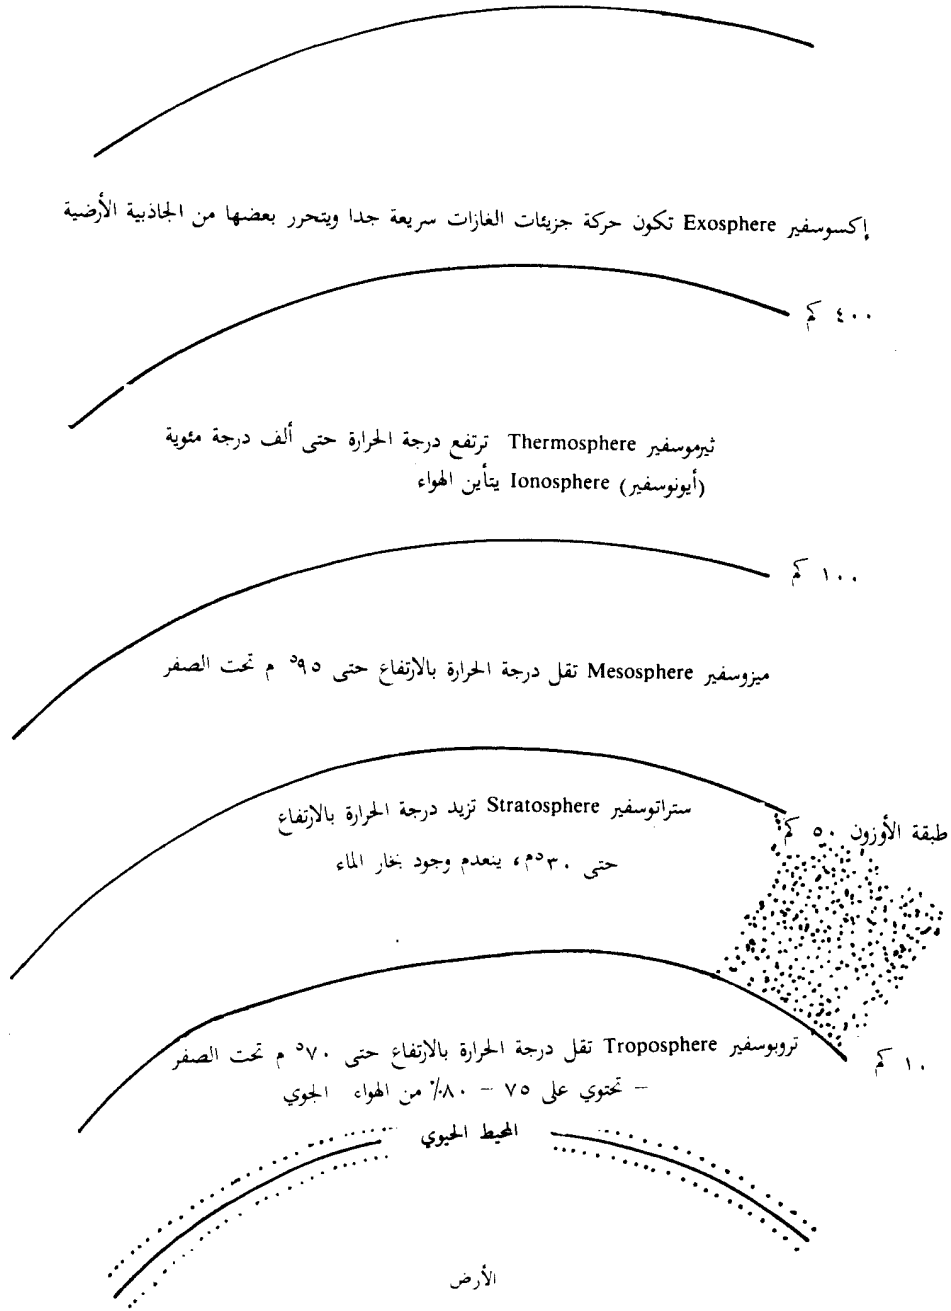 إكسوسفير Exosphere تكون حركة جزيئات الغازات سريعة جدا ويتحرر بعضها من الجاذبية الأرضية
٤٠٠ كم
ثيرموسفير Thermosphere ترتفع درجة الحرارة حتى ألف درجة مئوية
(أيونوسفير) Ionosphere يتأين الهواء
١٠٠ كم
ميزوسفير Mesosphere تقل درجة الحرارة بالارتفاع حتى ٩٥° م تحت الصفر
ستراتوسفير Stratosphere تزيد درجة الحرارة بالارتفاع
حتى ٣٠°م، ينعدم وجود بخار الماء
طبقة الأوزون ٥٠ كم
تروبوسفير Troposphere تقل درجة الحرارة بالارتفاع حتى ٧٠° م تحت الصفر
١٠ كم
– تحتوي على ٧٥ – ٨٠٪ من الهواء الجوي
المحيط الحيوي
الأرض